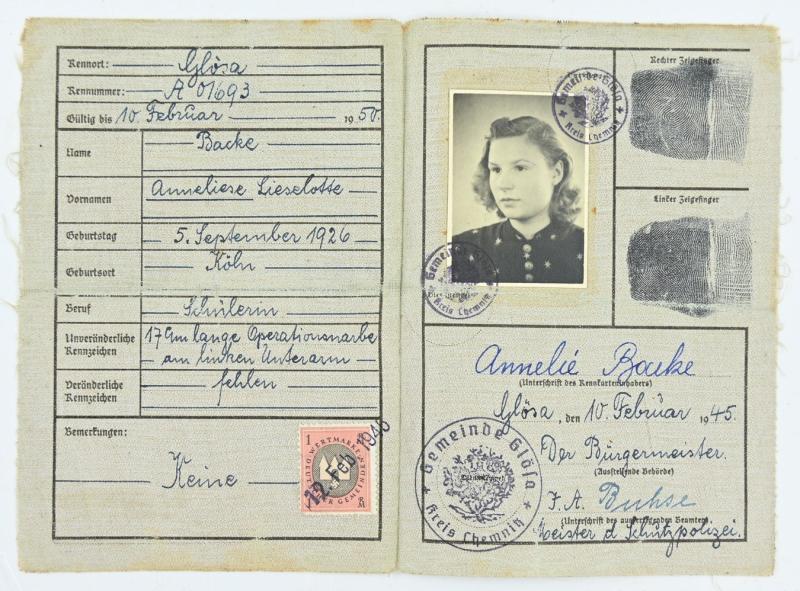 Kennort: Glösa
Kennummer: A 01693
Gültig bis 10. Februar 1950.
Name Backe
Vornamen Anneliese Lieselotte
Geburtstag 5. September 1926
Geburtsort Köln
Beruf Schülerin
Unveränderliche Kennzeichen 17 cm lange Operationsnarbe am linken Unterarm
Veränderliche Kennzeichen fehlen
Bemerkungen:
Keine
1
WERTMARKE
DER GEMEINDEN
RM
12. Feb. 1946
Rechter Zeigefinger
Gemeinde Glösa
Kreis Chemnitz
Linker Zeigefinger
Gemeinde Glösa
Kreis Chemnitz
Annelie Backe
(Unterschrift des Kennkarteninhabers)
Glösa, den 10. Februar 1945.
Der Bürgermeister.
(Ausstellende Behörde)
F. A. Buhse
(Unterschrift des ausfertigenden Beamten)
Meister d. Schutzpolizei.
Gemeinde Glösa
Kreis Chemnitz